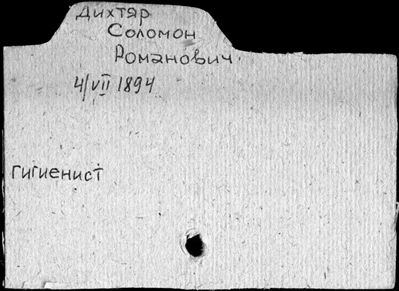 Дихтяр
Соломон
Романович.
4/VII 1894
гигиенист